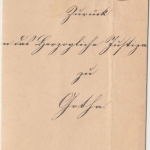 Zurück
das Herzogliche Justiza
zu
Gotha